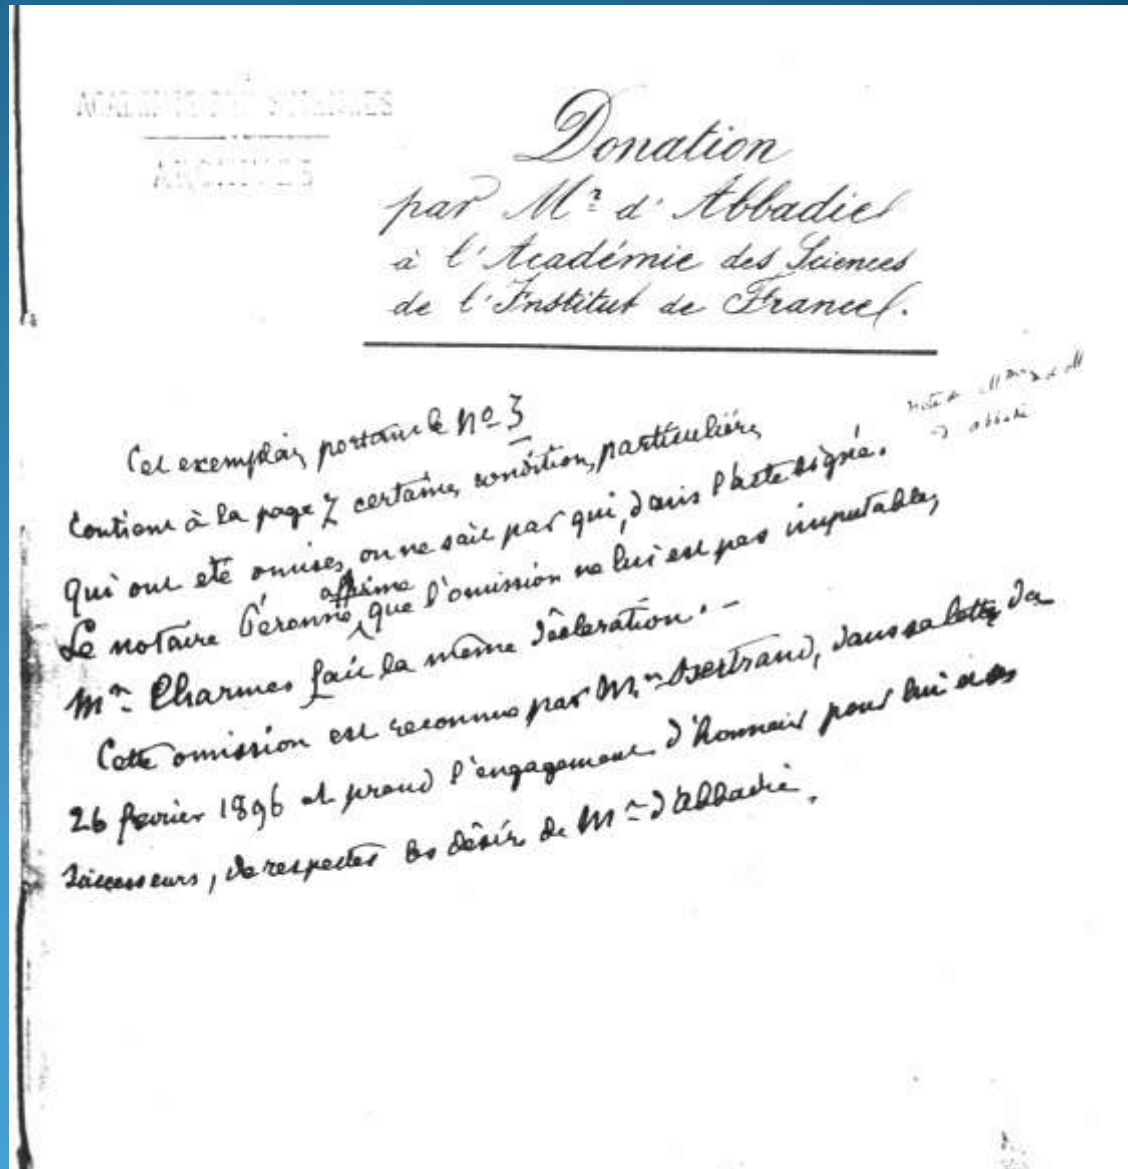 ACADEMIE DES SCIENCES
ARCHIVES
Donation
par Mr d'Abbadie
à l'Académie des Sciences
de l'Institut de France.
Note de Mme d'Abbadie
Cet exemplaire portant le No 3
contient à la page 7 certaines conditions particulières
qui ont été omises, on ne sait par qui, dans l'acte signé.
Le notaire Péronne affirme que l'omission ne lui est pas imputable,
Mr Charmes fait la même déclaration. –
Cette omission est reconnue par Mr Bertrand, dans sa lettre du
26 fevrier 1896 et prend l'engagement d'honneur pour lui et ses
successeurs, de respecter les désirs de Mr d'Abbadie.